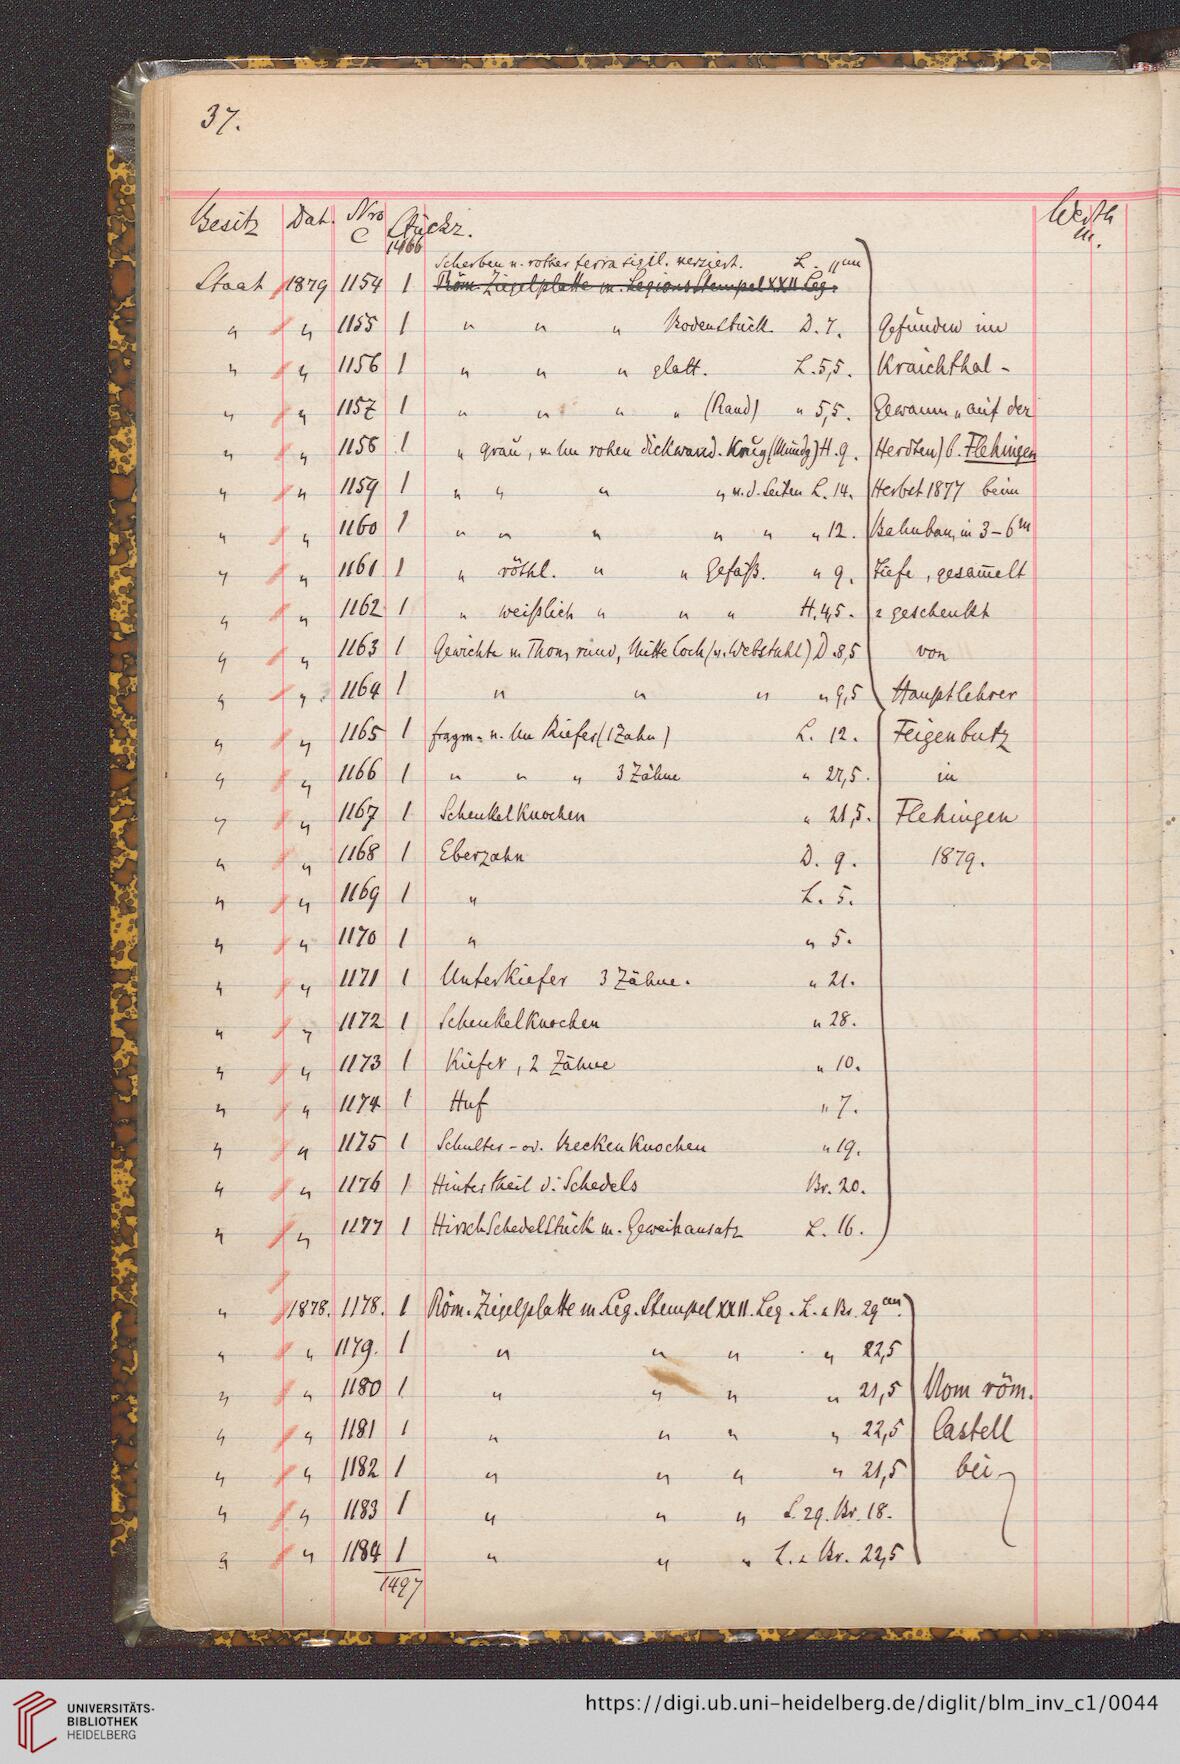 37.
Besitz Dat. Nro C Stückz. Werth M.
1466
Scherben v. rother terra sigil. verziert. L. 11 cm
Staat 1879 1154 1 Röm. Ziegelplatte m. Legions Stempel XXII Leg.
" " 1155 1 " " " Bodenstück. D. 7. Gefunden im
" " 1156 1 " " " glatt. L. 5,5. Kraichthal -
" " 1157 1 " " " " (Rand) " 5,5. Gewann „auf der
" " 1158 1 " grau, v. e. rohen dickwand. Krug (Mündg) H. 9. Herdten) b. Flehingen
" " 1159 1 " " " " v. d. Seiten L. 14. Herbst 1877 beim
" " 1160 1 " " " " " " 12. Bahnbau, in 3–6 m
" " 1161 1 " röthl. " " Gefäß. " 9. Tiefe, gesam̅elt
" " 1162 1 " weißlich " " " H. 4,5. & geschenkt
" " 1163 1 Gewichte v. Thon, rund, Mitte Loch (v. Webstuhl) D. 8,5 von
" " 1164 1 " " " " 9,5 Hauptlehrer
" " 1165 1 fragm. v. Kiefer (1 Zahn) L. 12. Feigenbutz
" " 1166 1 " " " 3 Zähne " 27,5. in
" " 1167 1 Schenkelknochen " 21,5. Flehingen
" " 1168 1 Eberzahn D. 9. 1879.
" " 1169 1 " L. 5.
" " 1170 1 " " 5.
" " 1171 1 Unterkiefer 3 Zähne. " 21.
" " 1172 1 Schenkelknochen " 28.
" " 1173 1 Kiefer, 2 Zähne " 10.
" " 1174 1 Huf " 7.
" " 1175 1 Schulter- od. Beckenknochen " 19.
" " 1176 1 Hintertheil d. Schedels Br. 20.
" " 1177 1 Hirschschedelstück m. Geweihansatz L. 16.
" 1878. 1178. 1 Röm. Ziegelplatte m. Leg. Stempel XXII. Leg. L. & Br. 29 cm.
" " 1179. 1 " " " " 22,5
" " 1180 1 " " " " 21,5 Vom röm.
" " 1181 1 " " " " 22,5 Castell
" " 1182 1 " " " " 21,5 bei
" " 1183 1 " " " L. 29. Br. 18.
" " 1184 1 " " " L. & Br. 22,5
1497
UNIVERSITÄTS-
BIBLIOTHEK
HEIDELBERG
https://digi.ub.uni-heidelberg.de/diglit/blm_inv_c1/0044